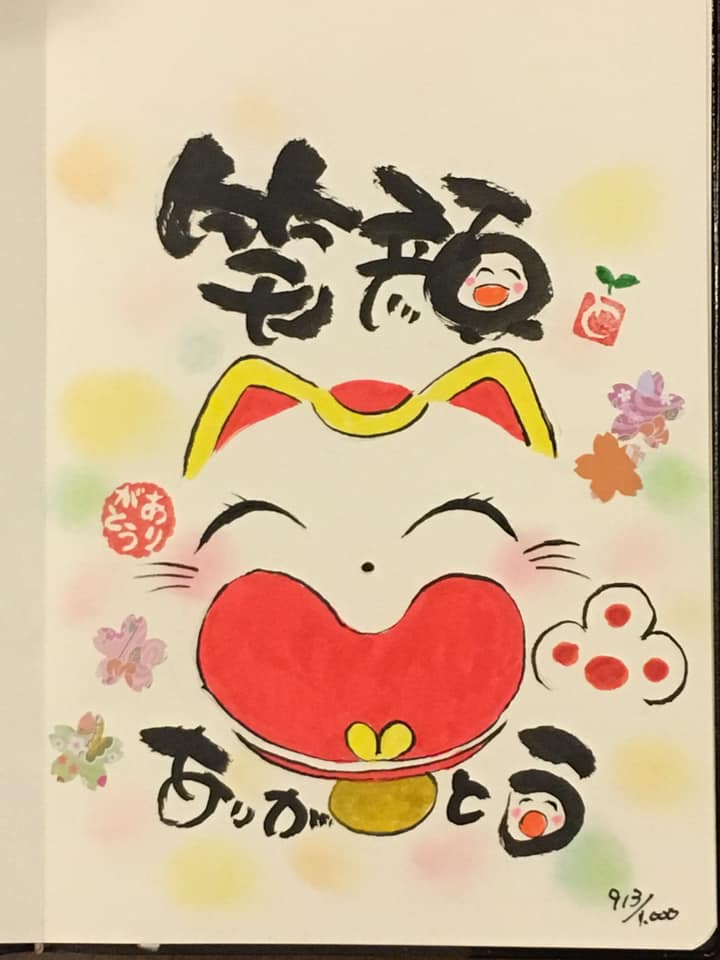 笑顔
ありがとう
ありがとう
913/1.000